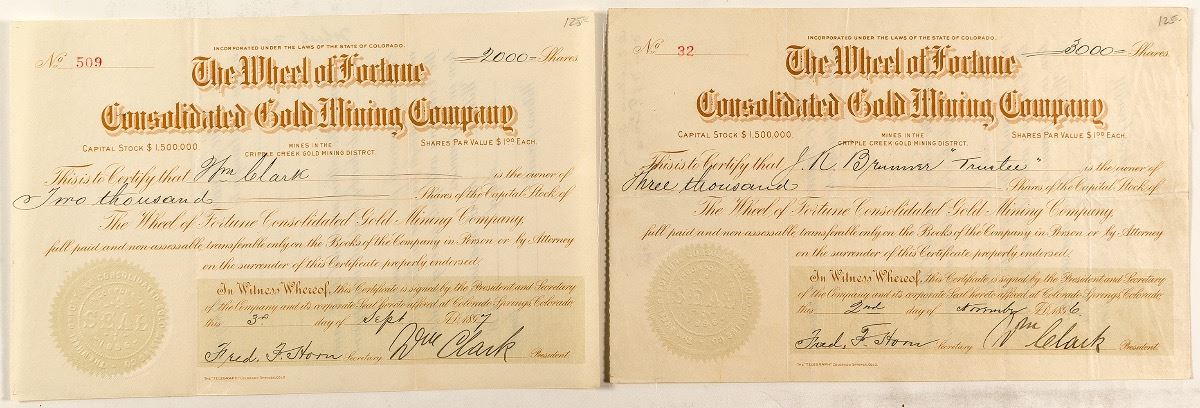 125-
INCORPORATED UNDER THE LAWS OF THE STATE OF COLORADO.
No 509
2000 Shares
The Wheel of Fortune
Consolidated Gold Mining Company
CAPITAL STOCK $1,500,000.
MINES IN THE
CRIPPLE CREEK GOLD MINING DISTRCT.
SHARES PAR VALUE $1.00 EACH.
This is to Certify that Wm Clark is the owner of
Two thousand Shares of the Capital Stock of
The Wheel of Fortune Consolidated Gold Mining Company,
full paid and non-assessable transferable only on the Books of the Company in Person or by Attorney
on the surrender of this Certificate properly endorsed.
In Witness Whereof, this Certificate is signed by the President and Secretary
of the Company and its corporate Seal hereto affixed at Colorado Springs, Colorado
this 3rd day of Sept A.D. 1897
Fred. F. Horn Secretary Wm Clark President.
SEAL
THE "TELEGRAPH" COLORADO SPRINGS, COLO.
125-
INCORPORATED UNDER THE LAWS OF THE STATE OF COLORADO.
No 32
3000 Shares
The Wheel of Fortune
Consolidated Gold Mining Company
CAPITAL STOCK $1,500,000.
MINES IN THE
CRIPPLE CREEK GOLD MINING DISTRCT.
SHARES PAR VALUE $1.00 EACH.
This is to Certify that J. R. Brunner "Trustee" is the owner of
Three thousand Shares of the Capital Stock of
The Wheel of Fortune Consolidated Gold Mining Company,
full paid and non-assessable transferable only on the Books of the Company in Person or by Attorney
on the surrender of this Certificate properly endorsed.
In Witness Whereof, this Certificate is signed by the President and Secretary
of the Company and its corporate Seal hereto affixed at Colorado Springs, Colorado
this 2nd day of November A.D. 1896
Fred. F. Horn Secretary Wm Clark President.
THE "TELEGRAPH" COLORADO SPRINGS, COLO.